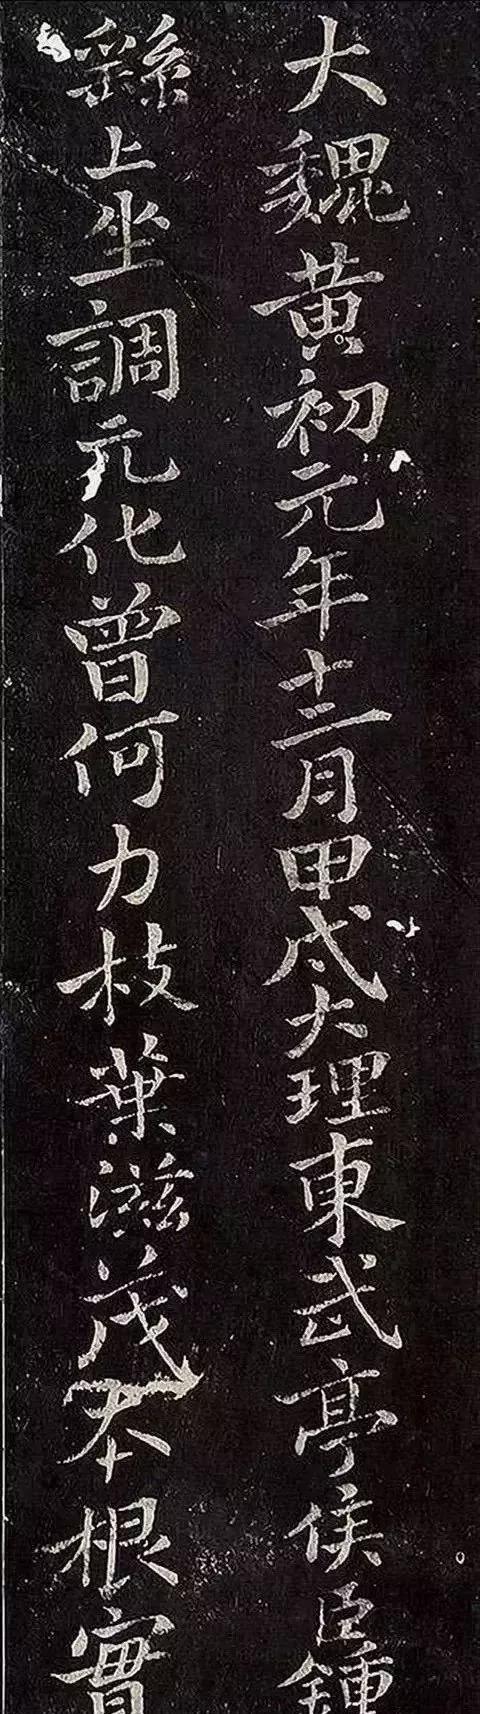 大魏黄初元年十二月甲戌大理東武亭侯臣鍾
繇上坐調元化曾何力枝葉滋茂本根實